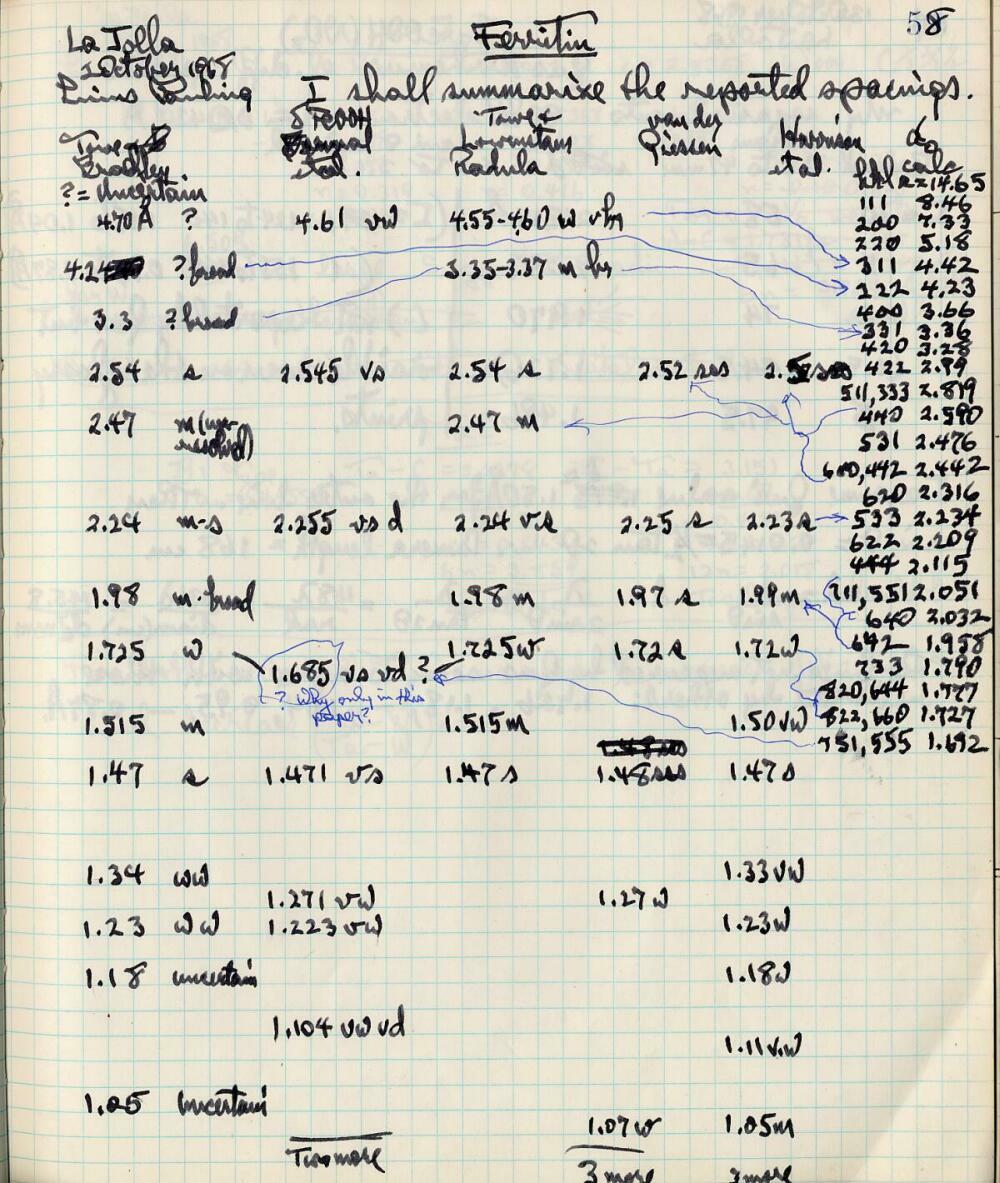 58
La Jolla Ferritin
2 October 1968
Linus Pauling I shall summarize the reported spacings.
δ FeOOH Towe & van der
Towe & Lowenstam Giessen Harrison d₀
Bradley et al. Radula et al. hkl calc
? = Uncertain a=14.65
111 8.46
4.70 Å ? 4.61 vw 4.55-4.60 w vbr 200 7.33
220 5.18
4.24 ? broad 3.35-3.37 m br 311 4.42
222 4.23
400 3.66
3.3 ? broad 331 3.36
420 3.28
2.54 s 2.545 vs 2.54 s 2.52 sss 2.5 422 2.99
511,333 2.819
2.47 m (unresolved) 2.47 m 440 2.590
531 2.476
600,442 2.442
620 2.316
2.24 m-s 2.255 vs d 2.24 vs 2.25 s 2.23 s 533 2.234
622 2.209
444 2.115
1.98 m-broad 1.98 m 1.97 s 1.99 m 711,551 2.051
640 2.032
1.725 w 1.725 w 1.72 s 1.72 w 642 1.958
1.685 vs vd ? 733 1.790
? Why only in this 820,644 1.777
paper?
1.515 m 1.515 m 1.50 vw 822,660 1.727
751,555 1.692
1.47 s 1.471 vs 1.47 s 1.48 sss 1.47 s
1.34 ww 1.33 vw
1.271 vw 1.27 w
1.23 ww 1.223 vw 1.23 w
1.18 uncertain 1.18 w
1.104 vw vd
1.11 v.w
1.05 Uncertain
1.07 w 1.05 m
Two more
3 more more